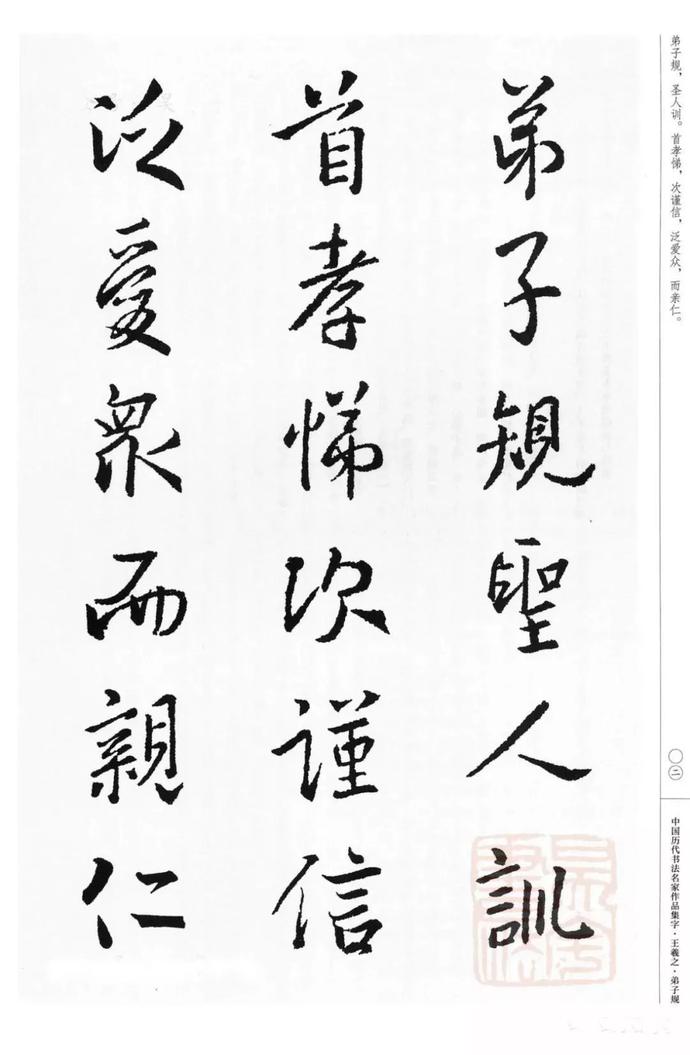 弟子规，圣人训。首孝悌，次谨信，泛爱众，而亲仁。
弟子規聖人訓
首孝悌次謹信
泛愛衆而親仁
〇二
中国历代书法名家作品集字·王羲之·弟子规